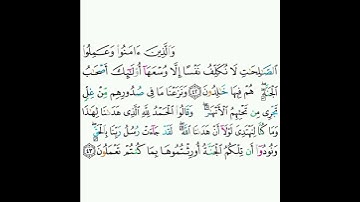 وَالَّذِينَ ءَامَنُوا وَعَمِلُوا
الصَّـٰلِحَـٰتِ لَا نُكَلِّفُ نَفْسًا إِلَّا وُسْعَهَآ أُو۟لَـٰٓئِكَ أَصْحَـٰبُ
الْجَنَّةِ ۖ هُمْ فِيهَا خَـٰلِدُونَ ٤٢ وَنَزَعْنَا مَا فِى صُدُورِهِم مِّنْ غِلٍّ
تَجْرِى مِن تَحْتِهِمُ الْأَنْهَـٰرُ ۖ وَقَالُوا الْحَمْدُ لِلَّهِ الَّذِى هَدَىٰنَا لِهَـٰذَا
وَمَا كُنَّا لِنَهْتَدِىَ لَوْلَآ أَنْ هَدَىٰنَا اللَّهُ ۖ لَقَدْ جَآءَتْ رُسُلُ رَبِّنَا بِالْحَقِّ ۖ
وَنُودُوٓا أَن تِلْكُمُ الْجَنَّةُ أُورِثْتُمُوهَا بِمَا كُنتُمْ تَعْمَلُونَ ٤٣